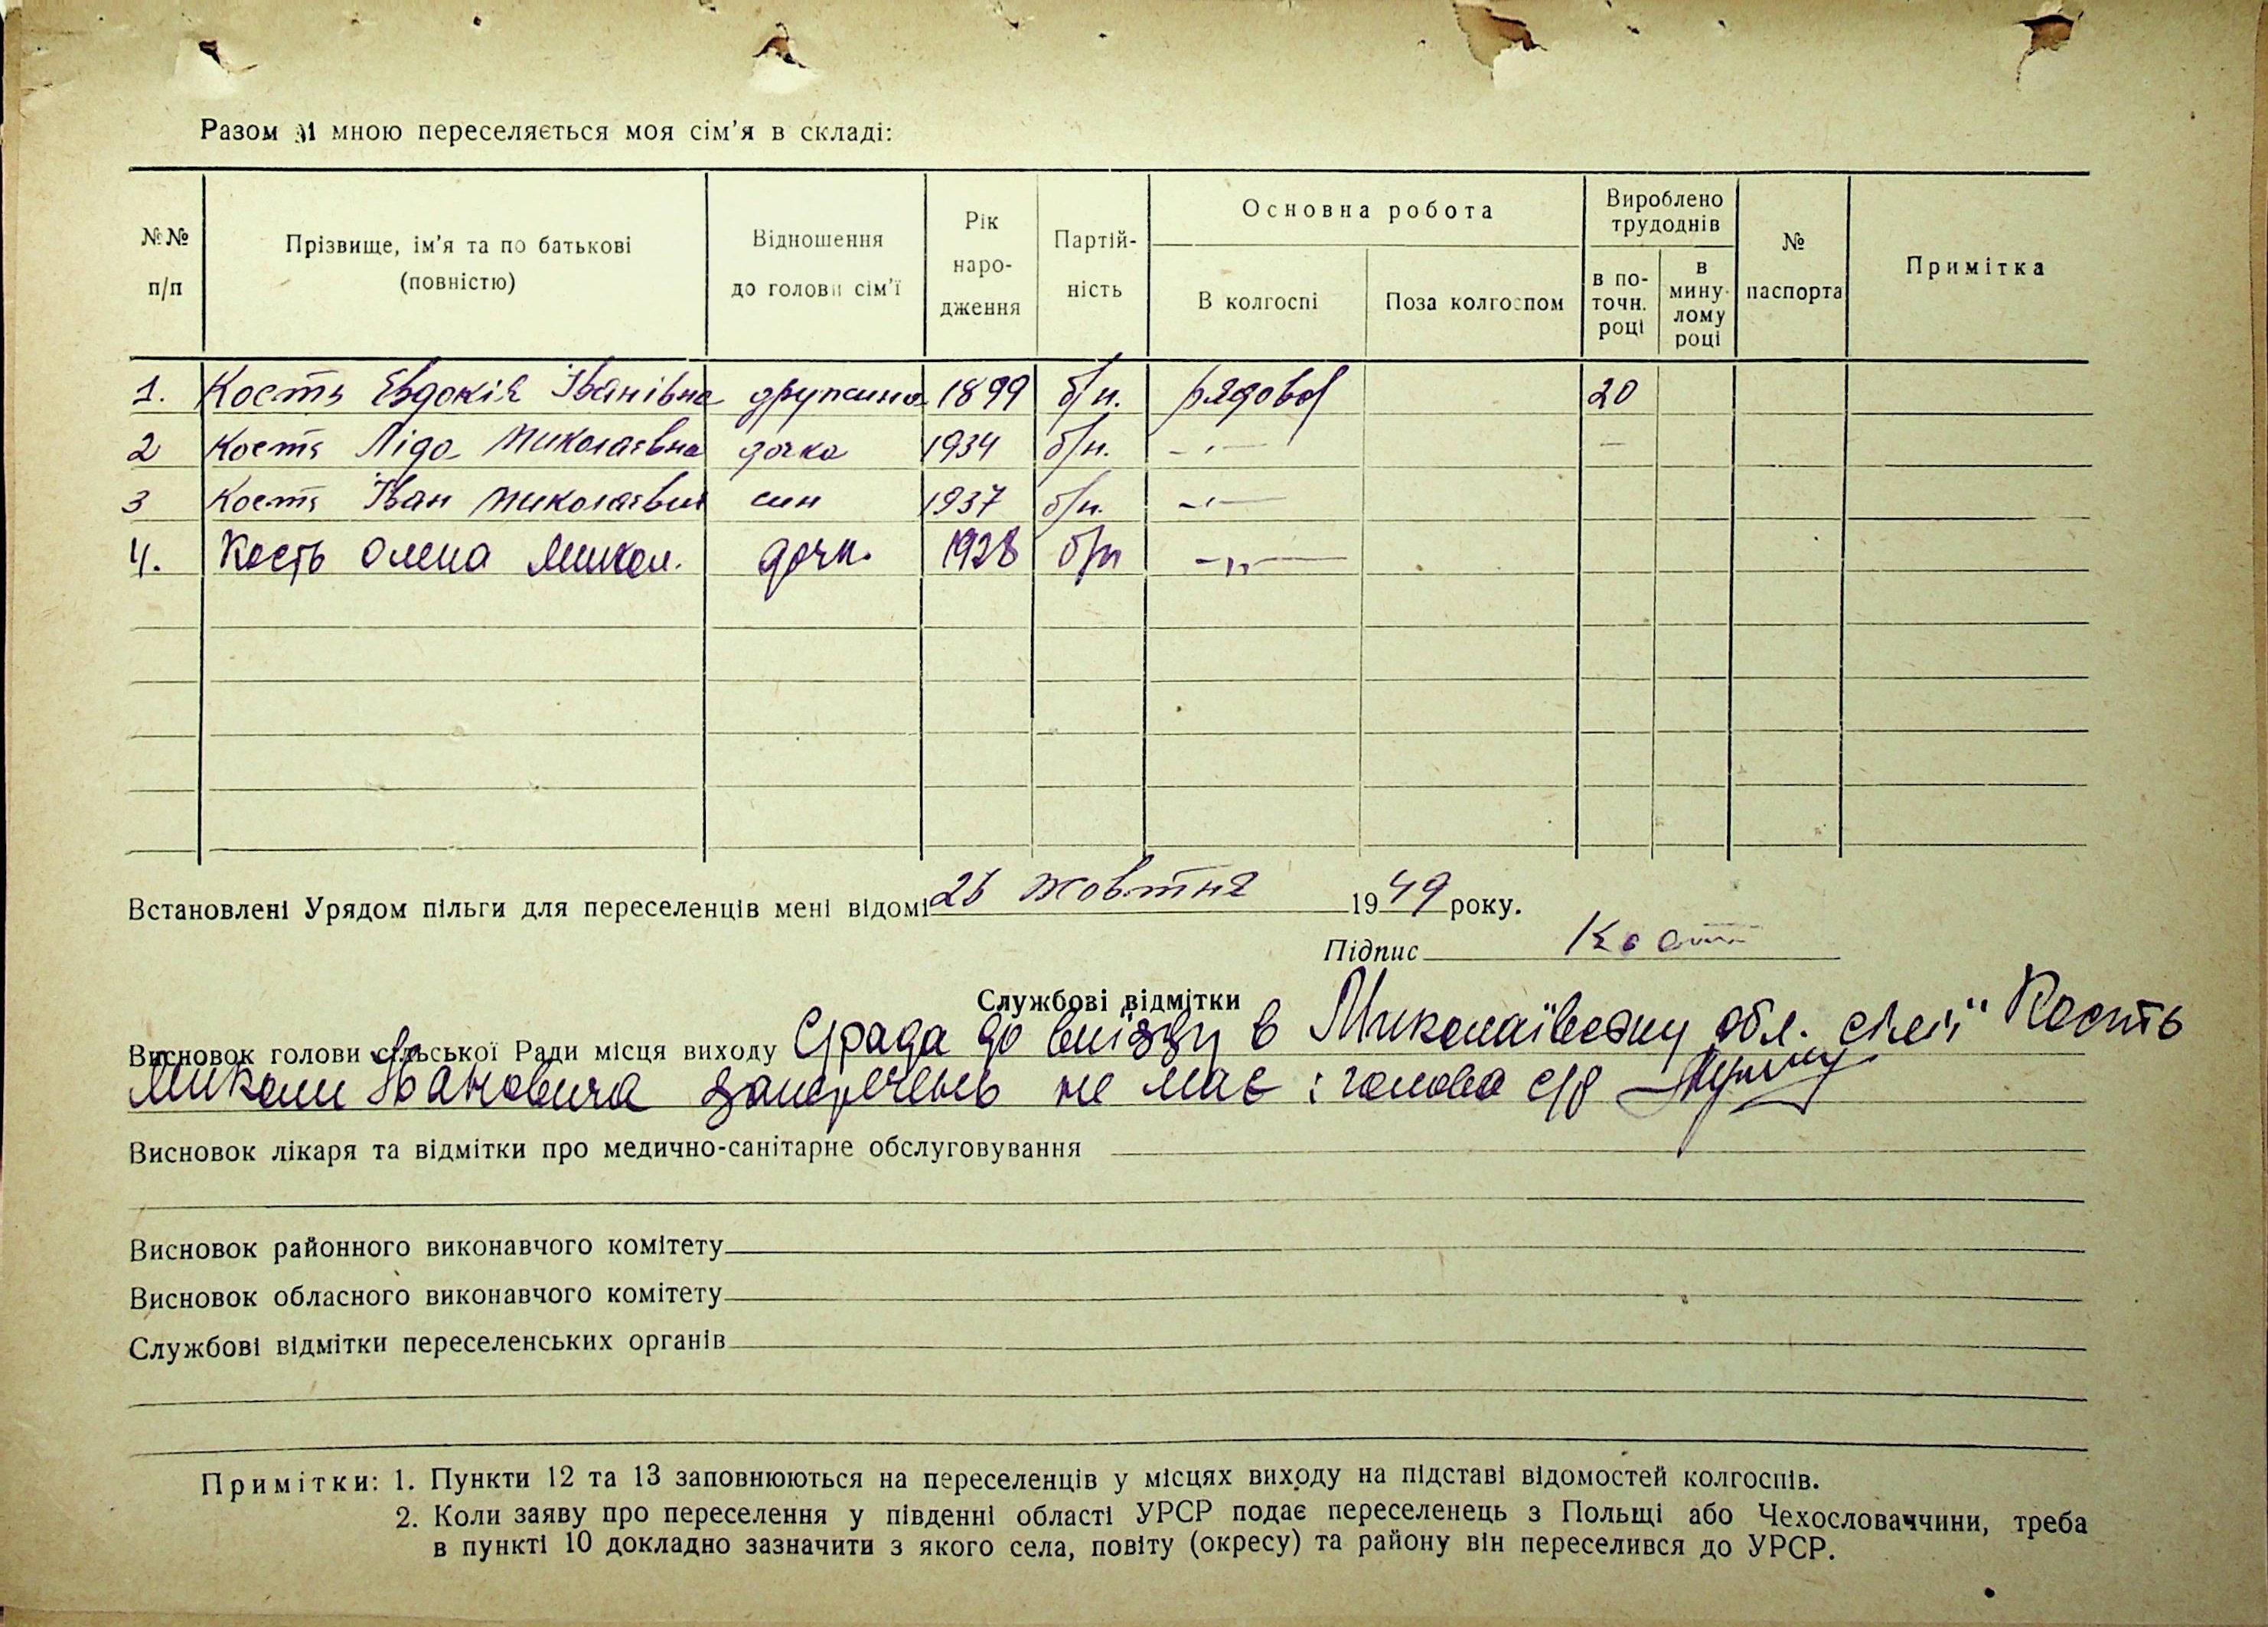 Разом зі мною переселяється моя сім'я в складі:
№№ п/п
Прізвище, ім'я та по батькові (повністю)
Відношення до голови сім'ї
Рік народження
Партій-ність
Основна робота
В колгоспі
Поза колгоспом
Вироблено трудоднів
в по-точн. році
в мину-лому році
№ паспорта
Примітка
1. Кость Евдокія Іванівна дружина 1899 б/п. рядова 20
2 Кость Ліда Миколаєвна дочка 1934 б/п. -"- —
3 Кость Іван Миколаєвич син 1937 б/п. -"-
4. Кость Олена Микол. дочк. 1928 б/п -"-
Встановлені Урядом пільги для переселенців мені відомі 26 жовтня 1949 року.
Підпис Кость
Службові відмітки
Висновок голови сільської Ради місця виходу С/рада до виїзду в Миколаївську обл. сім'ї Кость
Миколи Івановича заперечень не має : голова с/р
Висновок лікаря та відмітки про медично-санітарне обслуговування
Висновок районного виконавчого комітету
Висновок обласного виконавчого комітету
Службові відмітки переселенських органів
Примітки: 1. Пункти 12 та 13 заповнюються на переселенців у місцях виходу на підставі відомостей колгоспів.
2. Коли заяву про переселення у південні області УРСР подає переселенець з Польщі або Чехословаччини, треба
в пункті 10 докладно зазначити з якого села, повіту (окресу) та району він переселився до УРСР.